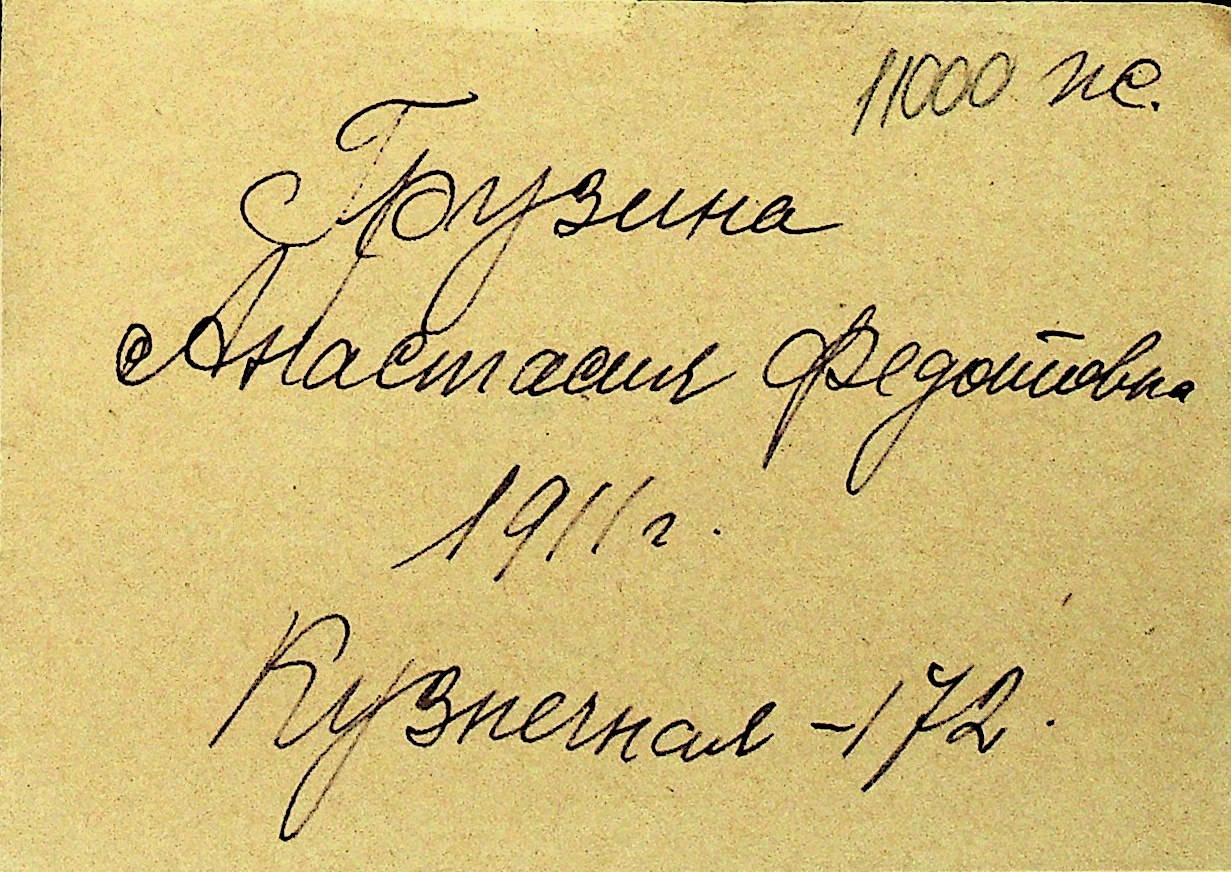 11000 пс.
Грузина
Анастасия Федотовна
1911 г.
Кузнечная - 172.